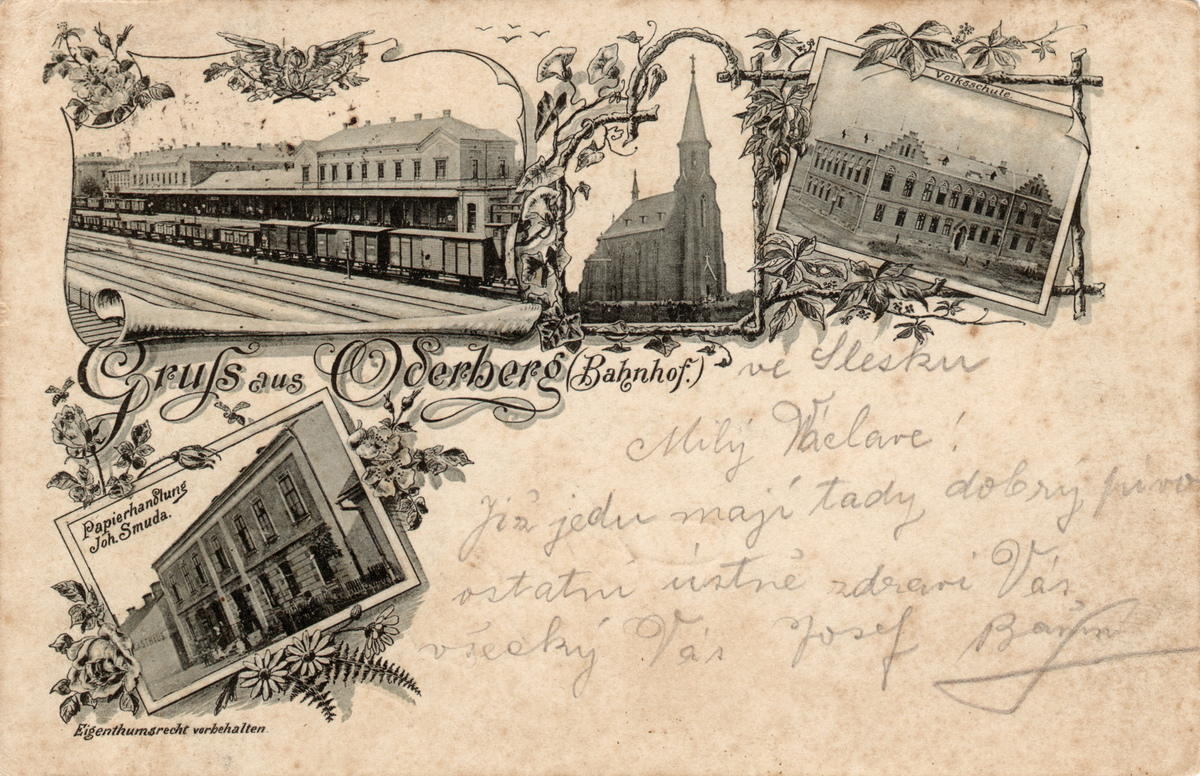 Volksschule.
Gruss aus Oderberg (Bahnhof.) ve Slesku
Milý Václave!
Již jedu mají tady dobrý pivo
ostatní ústně zdraví Vás
všecky Váš Josef
Papierhandlung
Joh. Smuda.
Eigenthumsrecht vorbehalten.